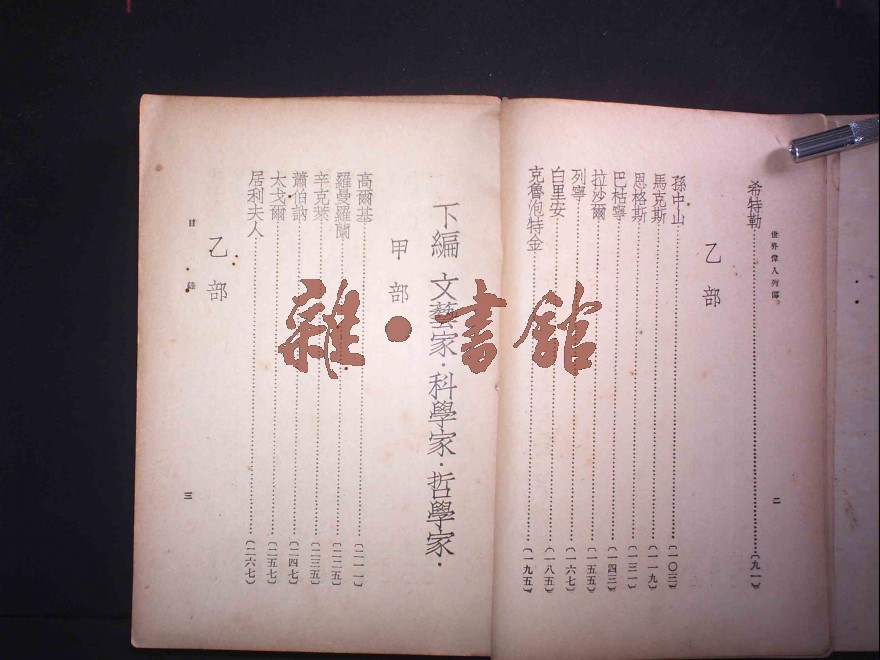 世界偉人列傳
二
希特勒〔九一〕
乙部
孫中山〔一〇三〕
馬克斯〔一一九〕
恩格斯〔一三一〕
巴枯寧〔一四三〕
拉沙爾〔一五五〕
列寧〔一六七〕
白里安〔一八五〕
克魯泡特金〔一九五〕
下編 文藝家·科學家·哲學家·
甲部
高爾基〔二一一〕
羅曼羅蘭〔二二五〕
辛克萊〔二三五〕
蕭伯訥〔二四七〕
太戈爾〔二五七〕
居利夫人〔二六七〕
乙部
目錄
三
雜·書館